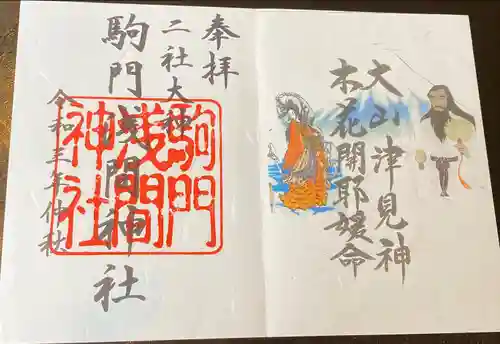 大山津見神
木花開耶媛命
奉拝
二社大神
駒門浅間神社
令和三年仲社
駒門
浅間
神社